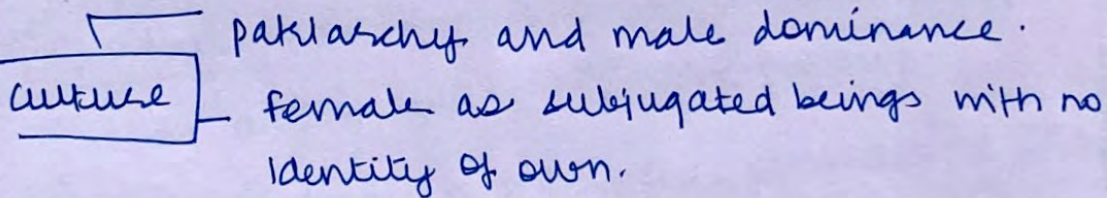 patriarchy and male dominance.
culture
female as subjugated beings with no
identity of own.